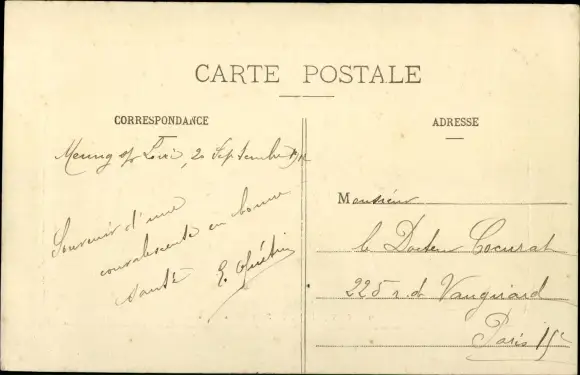 CARTE POSTALE
CORRESPONDANCE
Meung s/ Loire, 20 Septembre
Souvenir d'une
convalescente en bonne
santé
E. Guérin
ADRESSE
Monsieur
le Docteur Cocurat
225 r. d. Vaugirard
Paris 15e